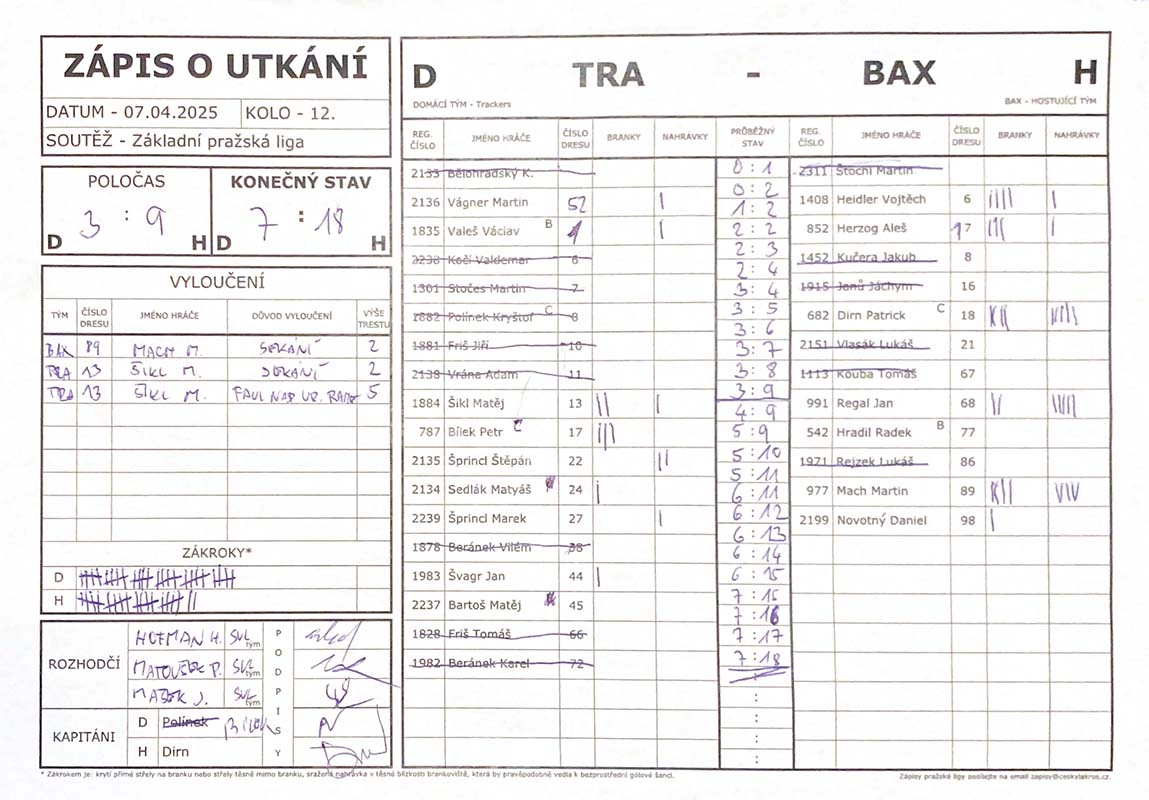 ZÁPIS O UTKÁNÍ
DATUM - 07.04.2025 KOLO - 12.
SOUTĚŽ - Základní pražská liga
POLOČAS KONEČNÝ STAV
3 : 9 7 : 18
D H D H
VYLOUČENÍ
TÝM ČÍSLO DRESU JMÉNO HRÁČE DŮVOD VYLOUČENÍ VÝŠE TRESTU
BAX 89 MACH M. SEKÁNÍ 2
TRA 13 ŠIKL M. SEKÁNÍ 2
TRA 13 ŠIKL M. FAUL NAD ÚR. RAM. 5
ZÁKROKY*
D
H
ROZHODČÍ
HOFMAN H. SVŠ tým
MATOUŠEK P. SVŠ tým
MAŠEK J. SVŠ tým
PODPISY
KAPITÁNI
D Polínek Bílek
H Dirn
D TRA - BAX H
DOMÁCÍ TÝM - Trackers BAX - HOSTUJÍCÍ TÝM
REG. ČÍSLO JMÉNO HRÁČE ČÍSLO DRESU BRANKY NAHRÁVKY PRŮBĚŽNÝ STAV REG. ČÍSLO JMÉNO HRÁČE ČÍSLO DRESU BRANKY NAHRÁVKY
2133 Bělohradský K.
2136 Vágner Martin 52 | |
1835 Valeš Václav B 1 |
2238 Kočí Valdemar 6
1301 Stočes Martin 7
1882 Polínek Kryštof C 8
1881 Friš Jiří 10
2138 Vrána Adam 11
1884 Šikl Matěj 13 || |
787 Bílek Petr C 17 |||
2135 Šprincl Štěpán 22 ||
2134 Sedlák Matyáš 24 |
2239 Šprincl Marek 27 |
1878 Beránek Vilém 38
1983 Švagr Jan 44 |
2237 Bartoš Matěj 45
1828 Friš Tomáš 66
1982 Beránek Karel 72
0 : 1
0 : 2
1 : 2
2 : 2
2 : 3
2 : 4
3 : 4
3 : 5
3 : 6
3 : 7
3 : 8
3 : 9
4 : 9
5 : 9
5 : 10
5 : 11
6 : 11
6 : 12
6 : 13
6 : 14
6 : 15
7 : 15
7 : 16
7 : 17
7 : 18
:
:
:
:
:
2311 Štochl Martin
1408 Heidler Vojtěch 6 |||| |
852 Herzog Aleš 17 ||| |
1452 Kučera Jakub 8
1915 Janů Jáchym 16
682 Dirn Patrick C 18
2151 Vlasák Lukáš 21
1113 Kouba Tomáš 67
991 Regal Jan 68 ||
542 Hradil Radek B 77
1971 Rejzek Lukáš 86
977 Mach Martin 89
2199 Novotný Daniel 98 |
* Zákrokem je: krytí přímé střely na branku nebo střely těsně mimo branku, sražená nahrávka v těsné blízkosti brankoviště, která by pravěpodobně vedla k bezprostřední gólové šanci.
Zápisy pražské ligy posílejte na email zapisy@ceskylakros.cz.